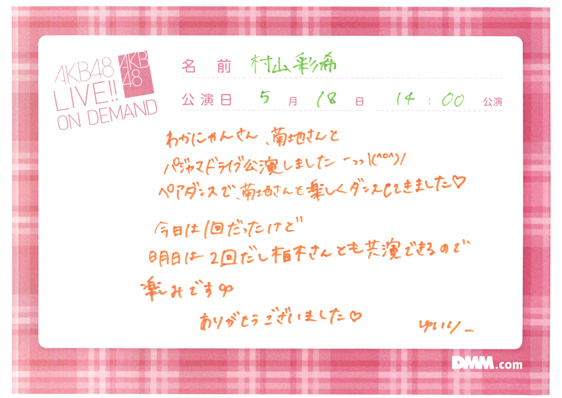 AKB48
LIVE!!
ON DEMAND
AKB
48
名前 村山彩希
公演日 5月18日 14:00公演
わかにゃんさん、菊地さんと
パジャマドライブ公演しましたーっっ\(^o^)/
ペアダンスで、菊地さんと楽しくダンスしてきました♡
今日は1回だったけど
明日は2回だし柏木さんとも共演できるので
楽しみです∞
ありがとうございました♡
ゆいりー
DMM.com